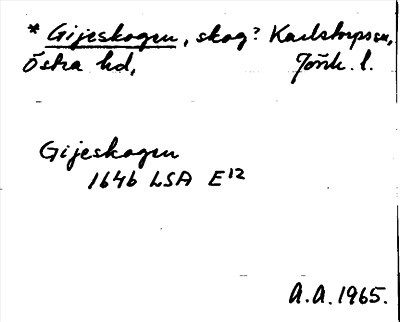 * Gijeskogen, skog? Karlstorps sn,
Östra hd, Jönk. l.
Gijeskogen
1646 LSA E12
A.A. 1965.